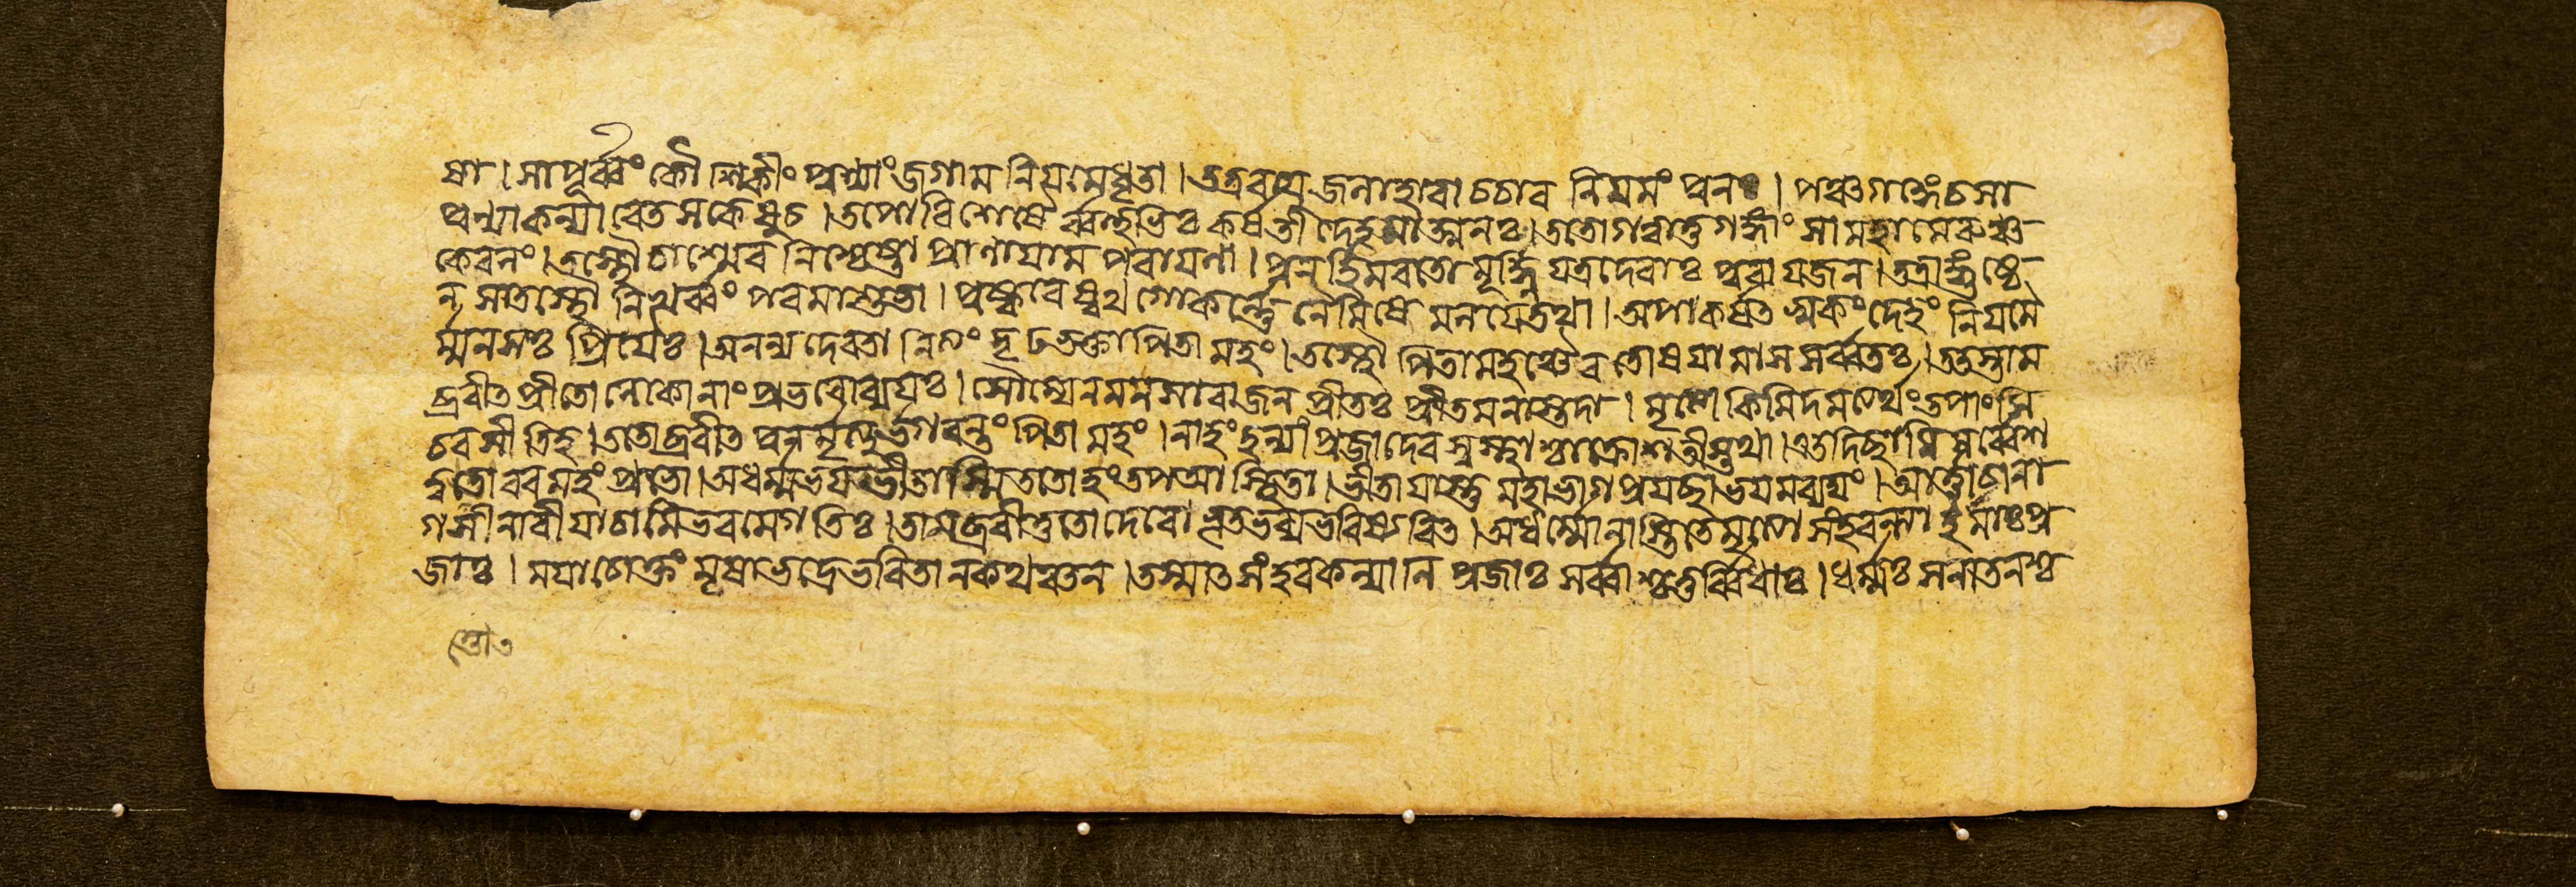 ষা। সা পূর্ব্বং কৌশিকীং পুণ্যাং জগাম নিয়মৈধৃতা। তত্র বায়ু জলাহারা চচার নিয়মং পুনঃ। পঞ্চগঙ্গেচ সা
পুণ্যা কন্যা বেতসকেষুচ। তপোবিশেষৈর্ব্বহুভিঃ কর্ষতী দেহমাত্মনঃ। ততো গত্বাতু গঙ্গাং সা মহামেরুঞ্চ
কেবলং। তস্থৌ চাশ্মেব নিশ্চেষ্টা প্রাণায়াম পরায়ণা। পুনর্হিমবতো মূর্দ্ধ্নি যত্র দেবাঃ পুরা যজন। তত্রাঙ্গুষ্ঠে
ন সা তস্থৌ নিখর্ব্বং পরমা শুভা। পুষ্করেষ্বথ গোকর্ণে নৈমিষে মলয়ে তথা। অপাকর্ষত স্বকং দেহং নিয়মৈ
র্ম্মনসঃ প্রিয়ৈঃ। অনন্যদেবতা নিত্যং দৃঢভক্তা পিতামহং। তস্থৌ পিতামহঞ্চৈব তোষয়ামাস ধর্ম্মতঃ। ততস্তাম
ব্রবীত প্রীতো লোকানাং প্রভবোব্যয়ঃ। সৌম্যেন মনসা রাজন প্রীতঃ প্রীতমনাস্তদা। মৃত্যো কিমিদমত্যর্থং তপাংসি
চরসীতিহ। ততোব্রবীত পুনর্মৃত্যুর্ভগবন্তং পিতামহং। নাহং হন্যাং প্রজা দেব স্বস্থাশ্চাক্রোশতীস্তথা। এতদিচ্ছামি সর্ব্বেশ
ত্বত্তো বরমহং প্রভো। অধর্ম্মভয়ভীতাস্মি ততোহং তপ আস্থিতা। ভীতায়াস্তু মহাভাগ প্রযচ্ছাভয়মব্যয়ং। আর্ত্তাচানা
গসী নারী যাচামি ভব মে গতিঃ। তামব্রবীত্ততো দেবো ভূতভব্যভবিষ্যবিত। অধর্ম্মো নাস্তি তে মৃত্যো সংহরন্ত্যা ইমাঃ প্র
জাঃ। ময়াচোক্তং মৃষা ভদ্রে ভবিতা ন কথঞ্চন। তস্মাত সংহর কল্যাণি প্রজাঃ সর্ব্বাশ্চতুর্ব্বিধাঃ। ধর্ম্মঃ সনাতনশ্চ